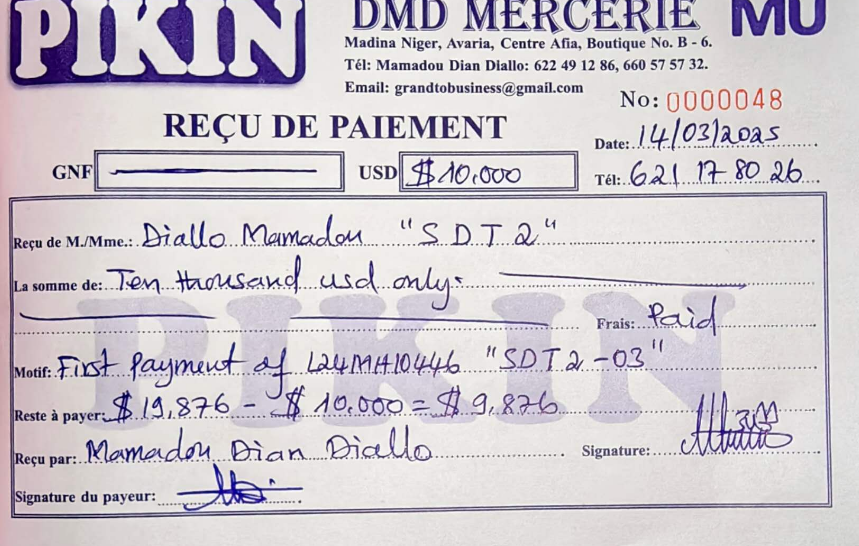 PIKIN
DMD MERCERIE
MU
Madina Niger, Avaria, Centre Afia, Boutique No. B - 6.
Tél: Mamadou Dian Diallo: 622 49 12 86, 660 57 57 32.
Email: grandtobusiness@gmail.com
No: 0000048
REÇU DE PAIEMENT
Date: 14/03/2025
GNF USD $10.000
Tél: 621 17 80 26
Reçu de M./Mme.: Diallo Mamadou "SDT2"
La somme de: Ten thousand usd only.
Frais: Paid
Motif: First Payment of L24MH10446 "SDT2-03"
Reste à payer: $19,876 - $10.000 = $9,876
Reçu par: Mamadou Dian Diallo Signature:
Signature du payeur:
PIKIN